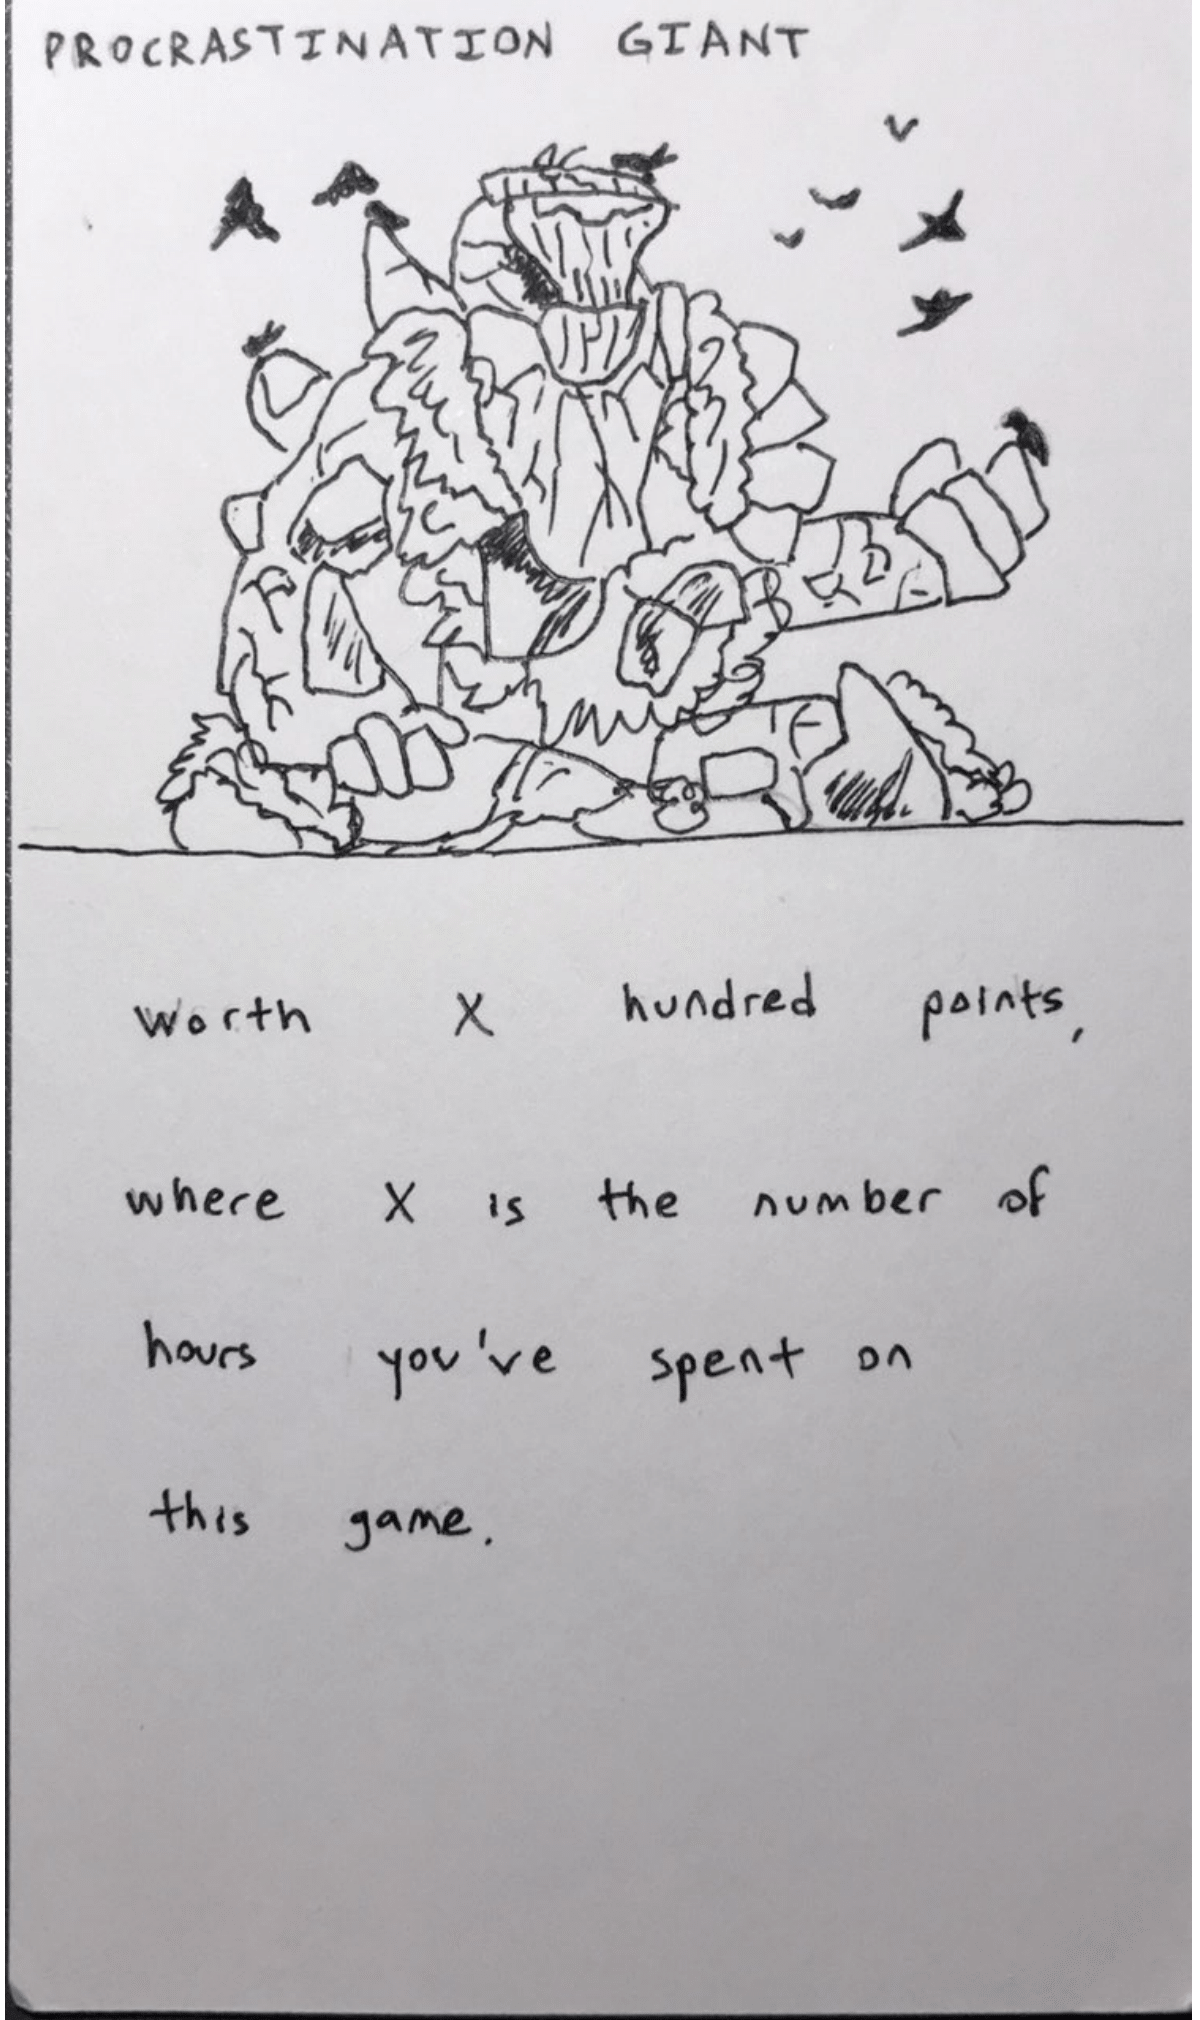 PROCRASTINATION GIANT
worth X hundred points,
where X is the number of
hours you've spent on
this game.